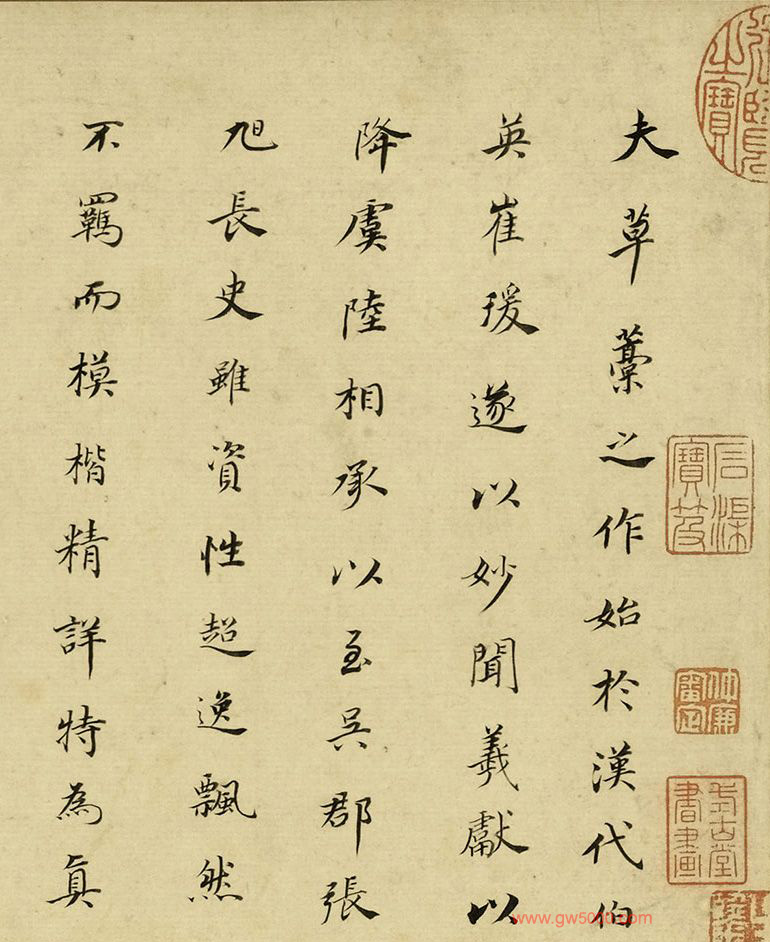 夫草藁之作始於漢代伯
英崔瑗遂以妙聞羲獻以
降虞陸相承以至吳郡張
旭長史雖資性超逸飄然
不羈而模楷精詳特為真
石渠寶笈
www.gw5000.com